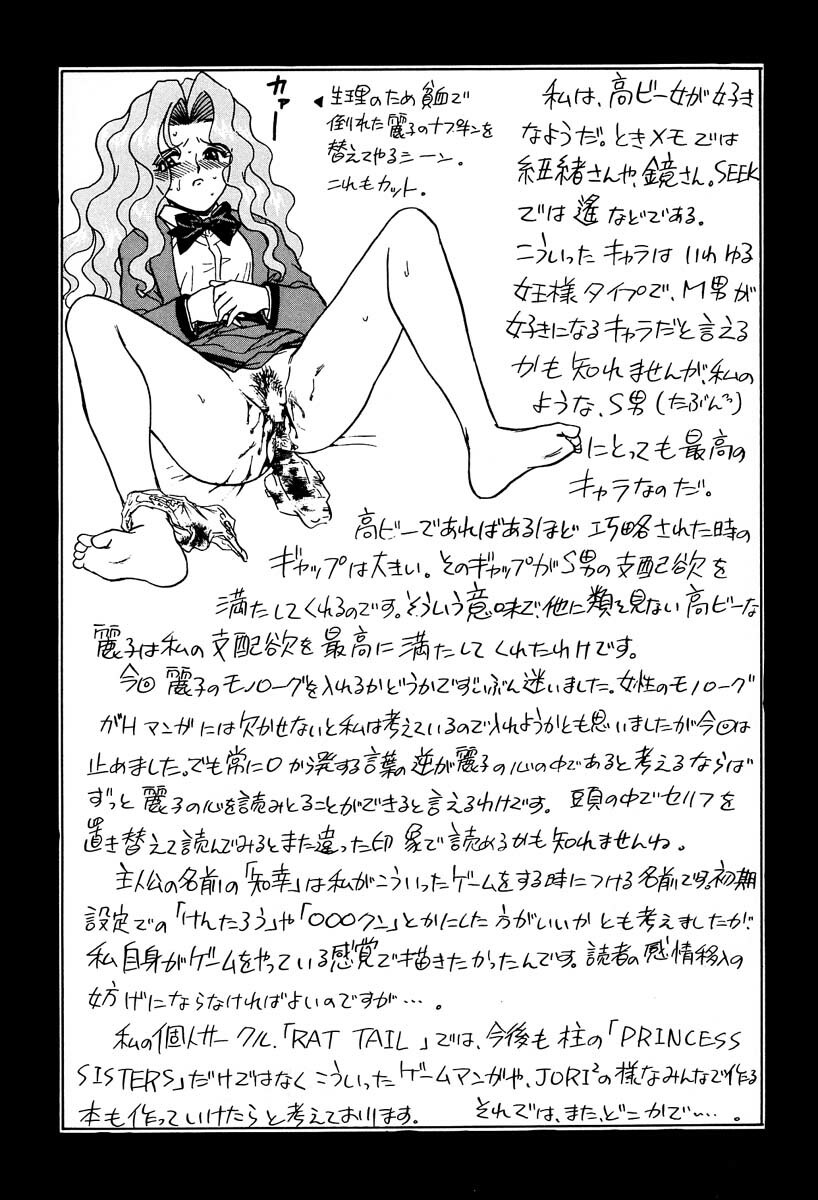 カァー
◀生理のため貧血で
倒れた麗子のナプキンを
替えてやるシーン。
これもカット。
私は、高ビー女が好き
なようだ。ときメモでは
紐緒さんや、鏡さん。SEEK
では遙などである。
こういったキャラは いわゆる
女王様タイプで、M男が
好きになるキャラだと言える
かも知れませんが、私の
ような、S男(たぶん)
にとっても最高の
キャラなのだ。
高ビーであればあるほど 巧略された時の
ギャップは大きい。そのギャップがS男の支配欲を
満たしてくれるのです。そういう意味で、他に類を見ない高ビーな
麗子は私の支配欲を最高に満たしてくれたわけです。
今回麗子のモノローグを入れるかどうかでずいぶん迷いました。女性のモノローグ
がHマンガには欠かせないと私は考えているので入れようかとも思いましたが今回は
止めました。でも常に口から発する言葉の逆が麗子の心の中であると考えるならば
ずっと麗子の心を読みとることができると言えるわけです。頭の中でセリフを
置き替えて読んでみるとまた違った印象で読めるかも知れませんね。
主人公の名前の「知幸」は私がこういったゲームをする時につける名前です。初期
設定での「けんたろう」や「○○○クン」とかにした方がいいかとも考えましたが、
私自身がゲームをやっている感覚で描きたかったんです。読者の感情移入の
妨げにならなければよいのですが…。
私の個人サークル、「RAT TAIL」では、今後も柱の「PRINCESS
SISTERS」だけではなくこういったゲームマンガや、JORI²の様なみんなで作る
本も作っていけたらと考えております。 それでは、また、どこかで…。